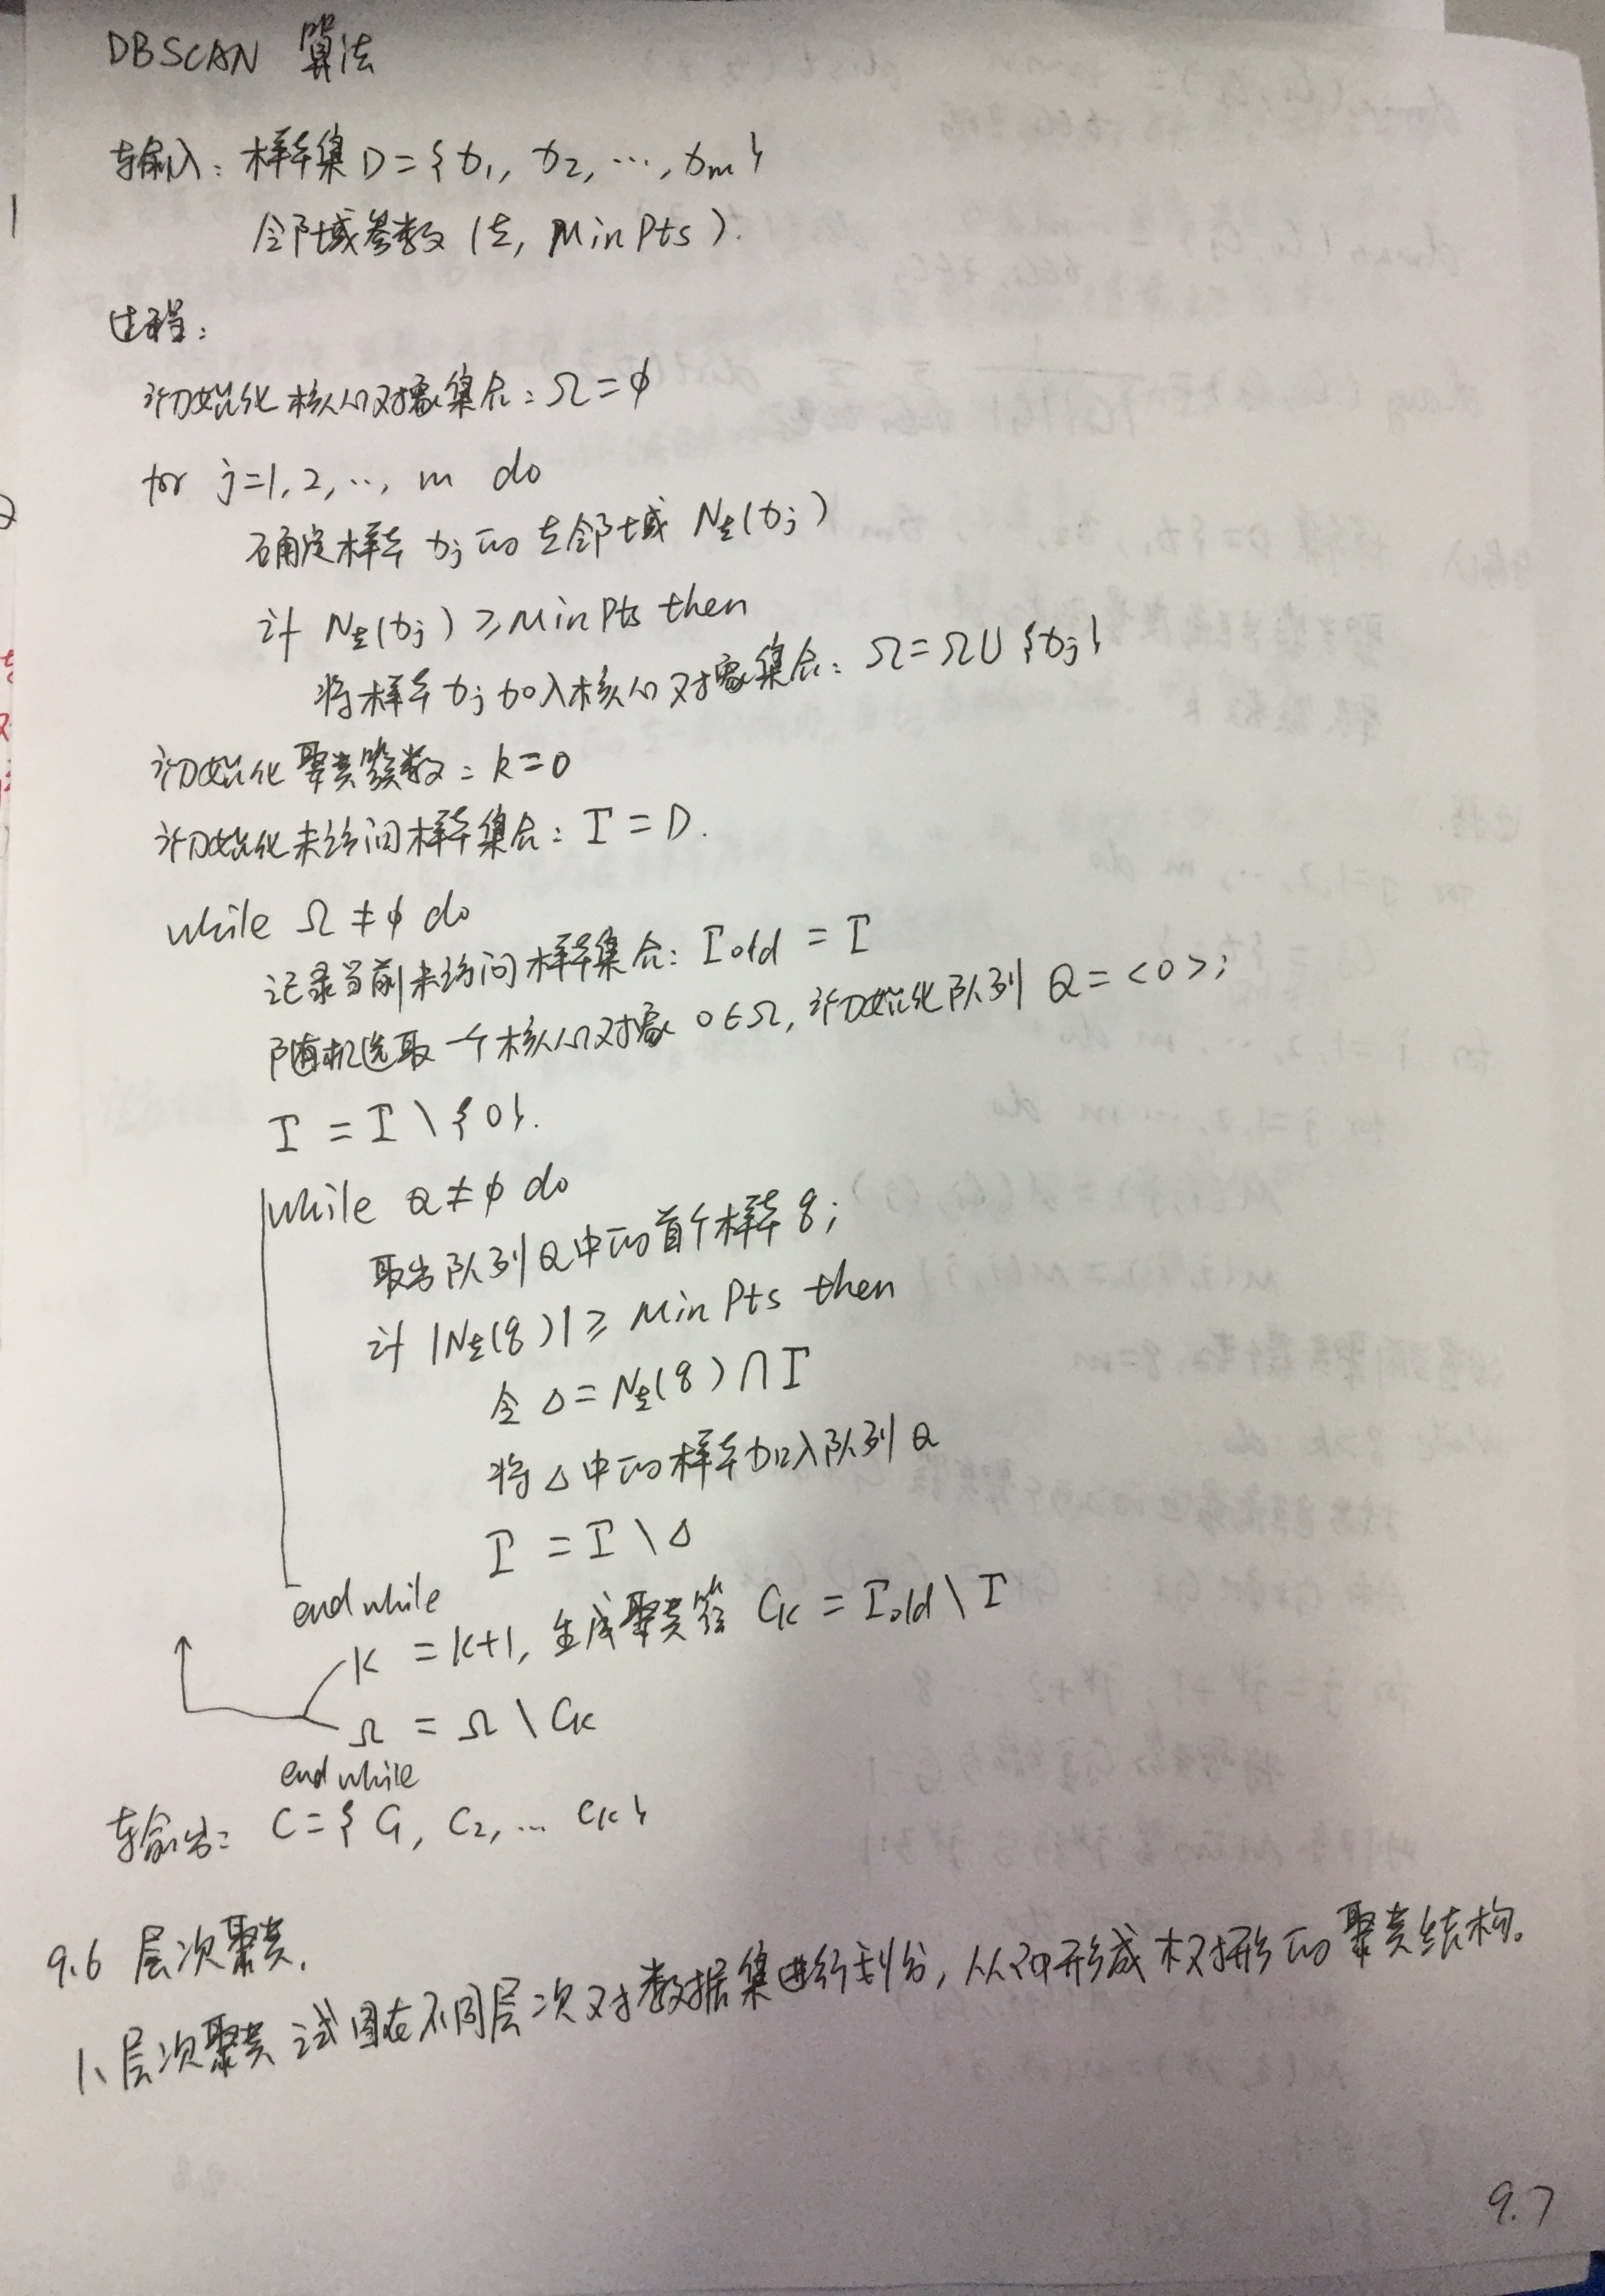 DBSCAN 算法
输入：样本集 D={x₁, x₂, ⋯, xₘ}
邻域参数 (ε, MinPts).
过程：
初始化核心对象集合：Ω=ϕ
for j=1,2,⋯, m do
确定样本 xⱼ 的 ε邻域 N_ε(xⱼ)
if N_ε(xⱼ) ⩾ MinPts then
将样本 xⱼ 加入核心对象集合：Ω=Ω∪{xⱼ}
初始化聚类簇数：k=0
初始化未访问样本集合：Γ=D.
while Ω≠ϕ do
记录当前未访问样本集合：Γold = Γ
随机选取一个核心对象 o∈Ω, 初始化队列 Q=<o>;
Γ = Γ \ {o}.
while Q≠ϕ do
取出队列Q中的首个样本 q;
if |N_ε(q)| ⩾ MinPts then
令 Δ=N_ε(q)∩Γ
将Δ中的样本加入队列Q
Γ = Γ \ Δ
end while
k = k+1, 生成聚类簇 Cₖ = Γold \ Γ
Ω = Ω \ Cₖ
end while
输出：C={C₁, C₂, ⋯ Cₖ}
9.6 层次聚类.
1、层次聚类试图在不同层次对数据集进行划分, 从而形成树形的聚类结构。
9.7